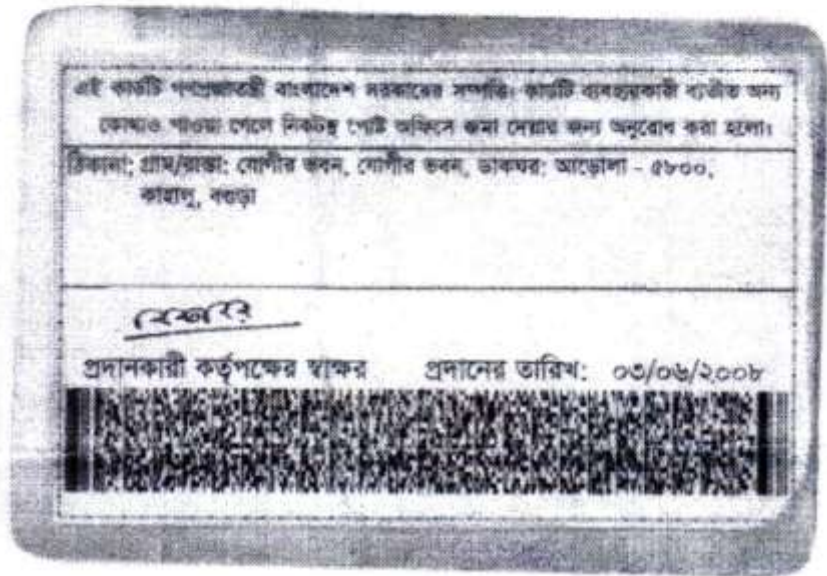 এই কার্ডটি গণপ্রজাতন্ত্রী বাংলাদেশ সরকারের সম্পত্তি। কার্ডটি ব্যবহারকারী ব্যতীত অন্য
কোথাও পাওয়া গেলে নিকটস্থ পোষ্ট অফিসে জমা দেয়ার জন্য অনুরোধ করা হলো।
ঠিকানা: গ্রাম/রাস্তা: যোগীর ভবন, যোগীর ভবন, ডাকঘর: আড়োলা - ৫৮০০,
কাহালু, বগুড়া
প্রদানকারী কর্তৃপক্ষের স্বাক্ষর প্রদানের তারিখ: ০৩/০৬/২০০৮